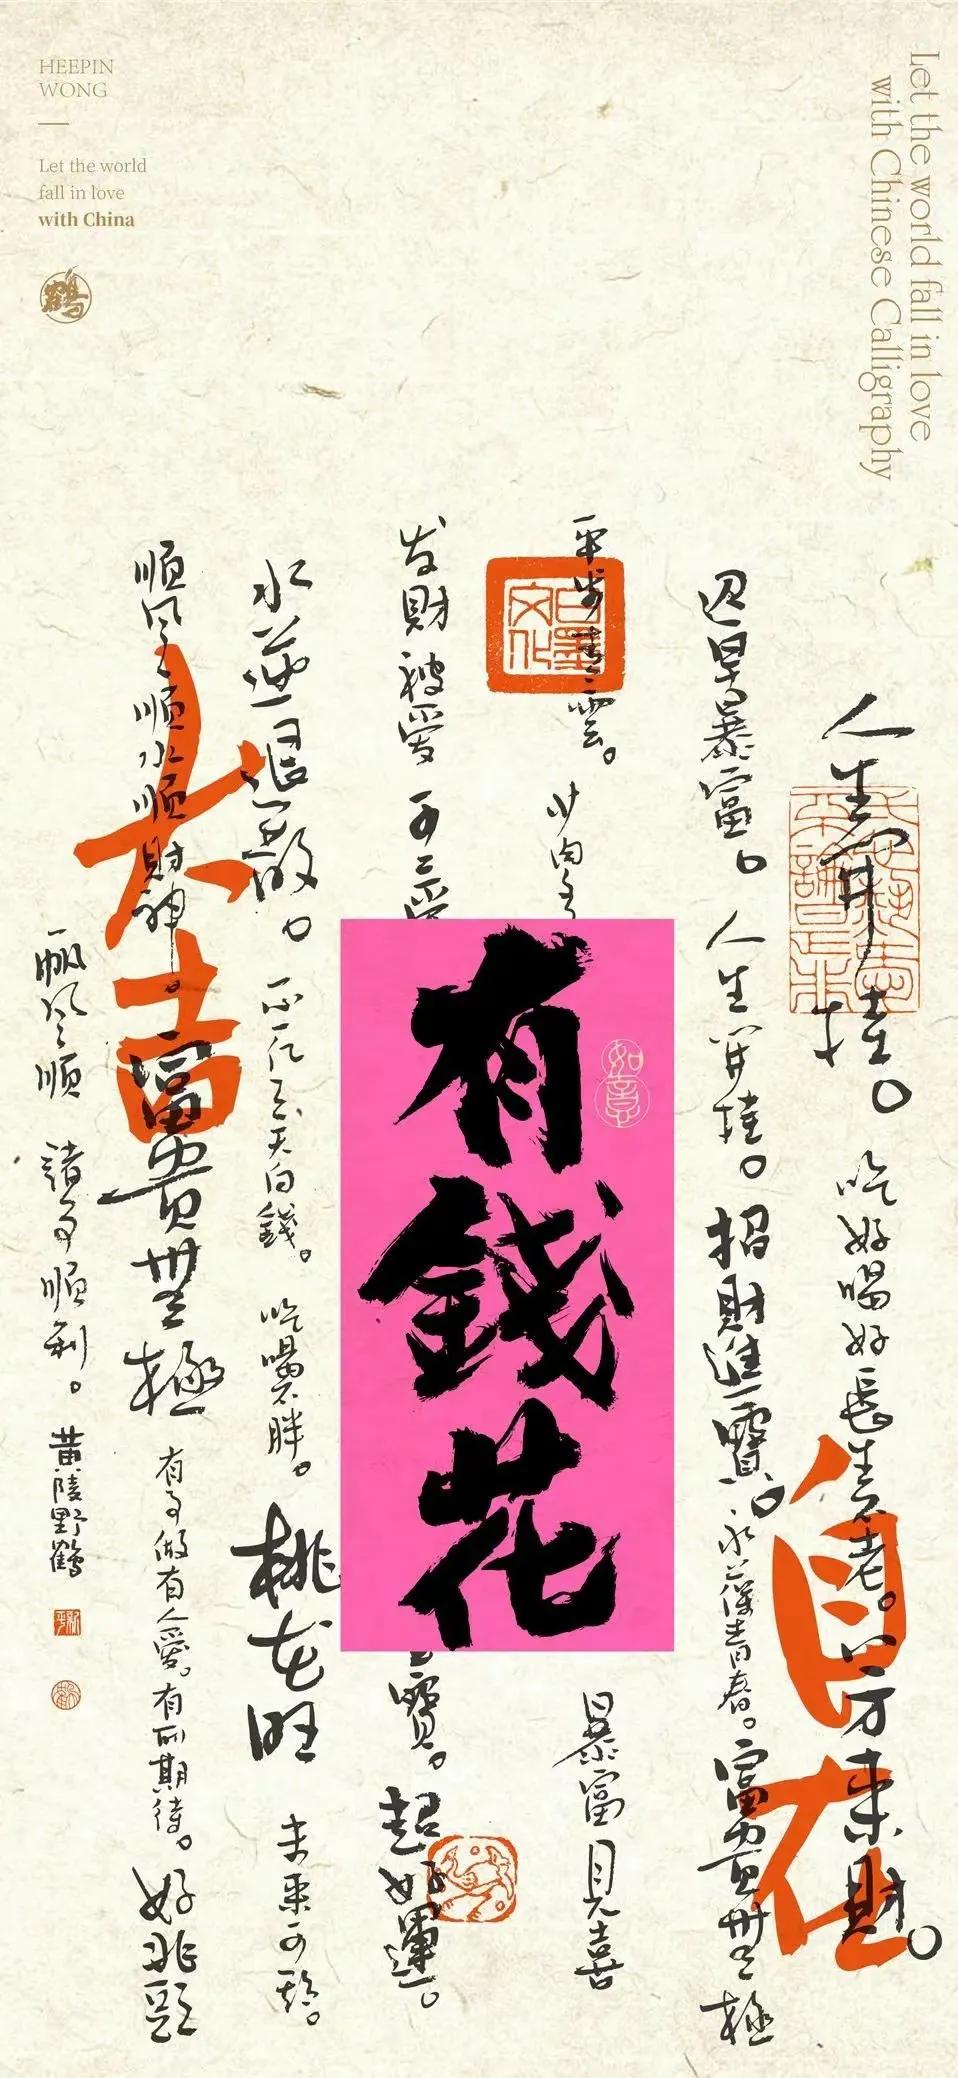 HEEPIN
WONG
Let the world
fall in love
with China
鶴
Let the world fall in love
with Chinese Calligraphy
人生開掛。吃好喝好長生不老。八方来財。
迟早暴富。人生開掛。招財進寶。永葆青春。富貴無極
平步青雲。
暴富見喜
发財被愛
寶。超好運。
水逆退散。不行天天白錢。吃喝不胖。桃花旺 未来可期。
順風順水順財神。富貴無極 有事做有人愛。有所期待。好兆頭
一帆風順 諸事順利。黄陵野鶴
白墨文化
大吉
自在
有錢花
如意